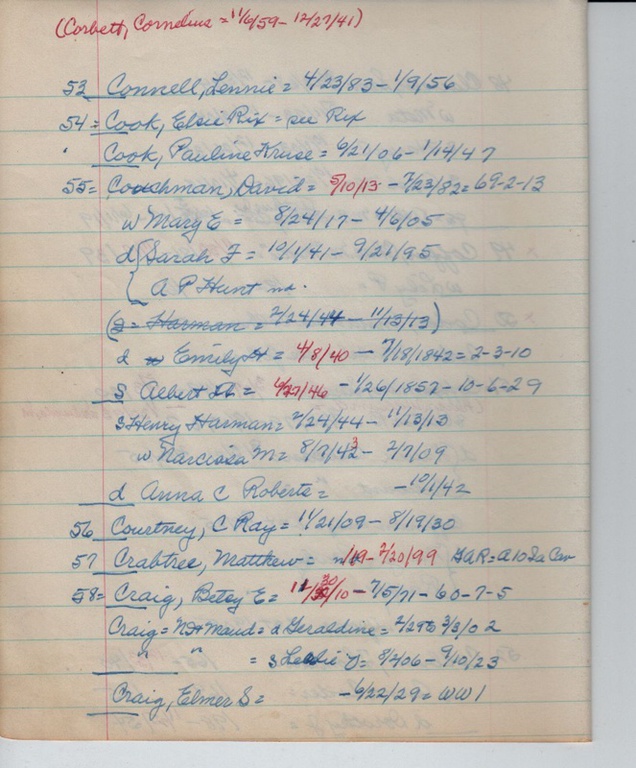 (Corbett, Cornelius = 11/6/59 - 12/27/41)
53 Connell, Lennie = 4/23/83 - 1/9/56
54 = Cook, Elsie Rix = see Rix
Cook, Pauline Kruse = 6/21/06 - 1/14/47
55 = Couchman, David = 5/10/13 - 7/23/82 = 69-2-13
w Mary E = 8/24/17 - 4/6/05
d Sarah F = 10/1/41 - 9/21/95
A P Hunt
(s = Harman = 2/24/44 - 11/13/13)
d Emily = 4/8/40 - 7/18/1842 = 2-3-10
S Albert = 6/27/46 - 1/26/1857 - 10-6-29
s Henry Harman = 2/24/44 - 11/13/13
w Narcissa M = 8/7/43 - 2/7/09
d Anna C Roberts = - 10/1/42
56 Courtney, C Ray = 11/21/09 - 8/19/30
57 Crabtree, Matthew = /19 - 2/20/99 GAR = A 10 Ia Cav
58 = Craig, Betsy E = 11/30/10 - 7/5/71 - 60-7-5
Craig = N D + Maud = d Geraldine = 2/2 3/3/02
" " = s Leslie = 8/4/06 - 9/10/23
Craig, Elmer S = - 6/22/29 = WW 1